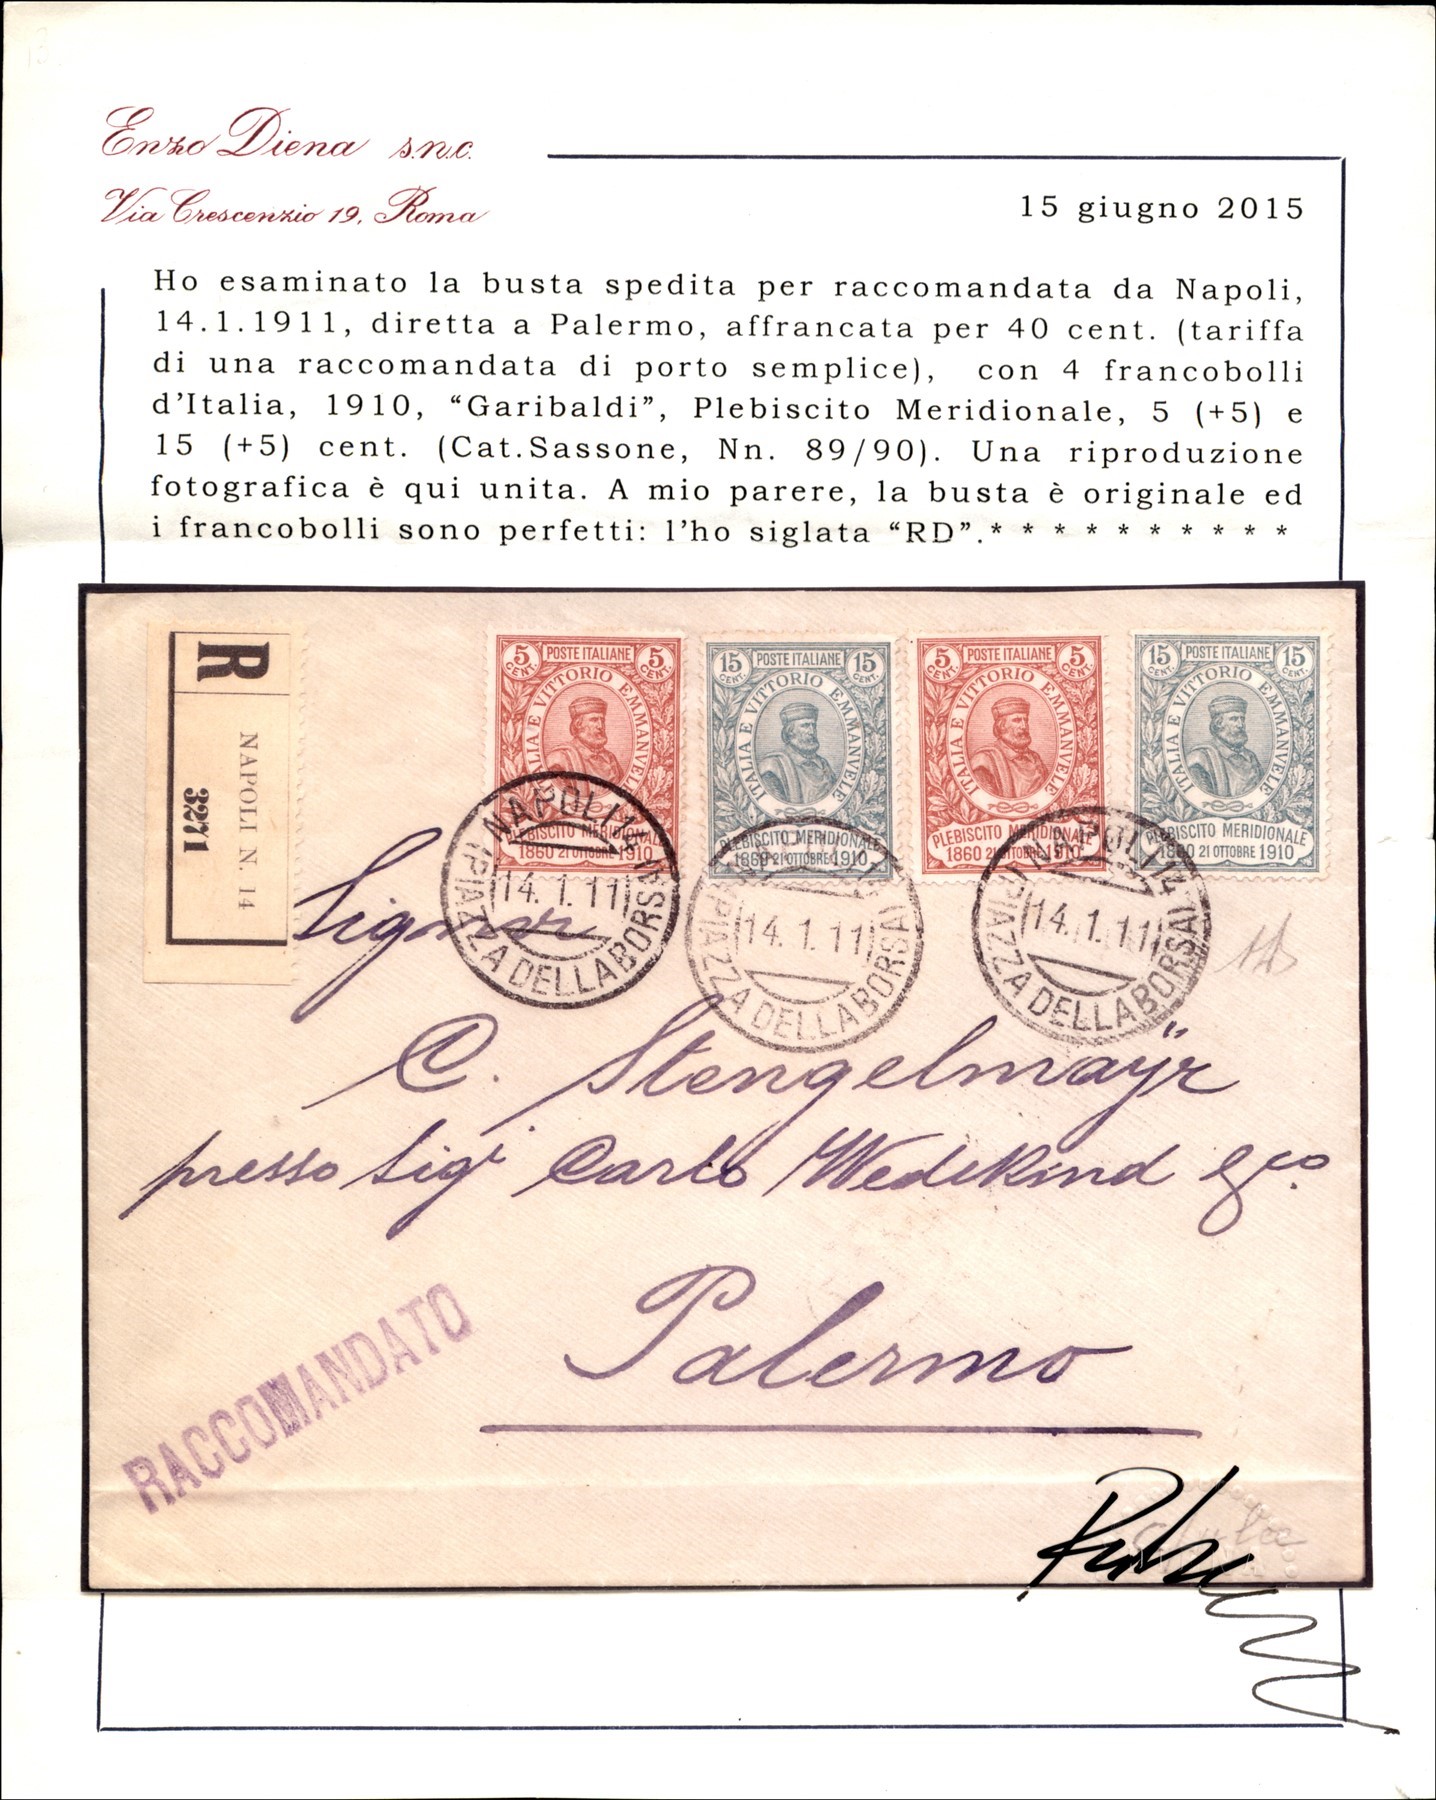 Enzo Diena s.n.c.
Via Crescenzio 19, Roma
15 giugno 2015
Ho esaminato la busta spedita per raccomandata da Napoli,
14.1.1911, diretta a Palermo, affrancata per 40 cent. (tariffa
di una raccomandata di porto semplice), con 4 francobolli
d'Italia, 1910, “Garibaldi”, Plebiscito Meridionale, 5 (+5) e
15 (+5) cent. (Cat.Sassone, Nn. 89/90). Una riproduzione
fotografica è qui unita. A mio parere, la busta è originale ed
i francobolli sono perfetti: l'ho siglata “RD”.* * * * * * * * * *
R
NAPOLI N. 14
3271
5 CENT. POSTE ITALIANE 5 CENT.
ITALIA E VITTORIO EMMANUELE
PLEBISCITO MERIDIONALE
1860 21 OTTOBRE 1910
15 CENT. POSTE ITALIANE 15 CENT.
ITALIA E VITTORIO EMMANUELE
PLEBISCITO MERIDIONALE
1860 21 OTTOBRE 1910
5 CENT. POSTE ITALIANE 5 CENT.
ITALIA E VITTORIO EMMANUELE
PLEBISCITO MERIDIONALE
1860 21 OTTOBRE 1910
15 CENT. POSTE ITALIANE 15 CENT.
ITALIA E VITTORIO EMMANUELE
PLEBISCITO MERIDIONALE
1860 21 OTTOBRE 1910
NAPOLI 14
14. 1. 11
(PIAZZA DELLA BORSA)
14. 1. 11
(PIAZZA DELLA BORSA)
NAPOLI 14
14. 1. 11
(PIAZZA DELLA BORSA)
Signor
C. Stengelmaÿr
presso Sigi Carlo Wedekind & Co.
Palermo
RACCOMANDATO